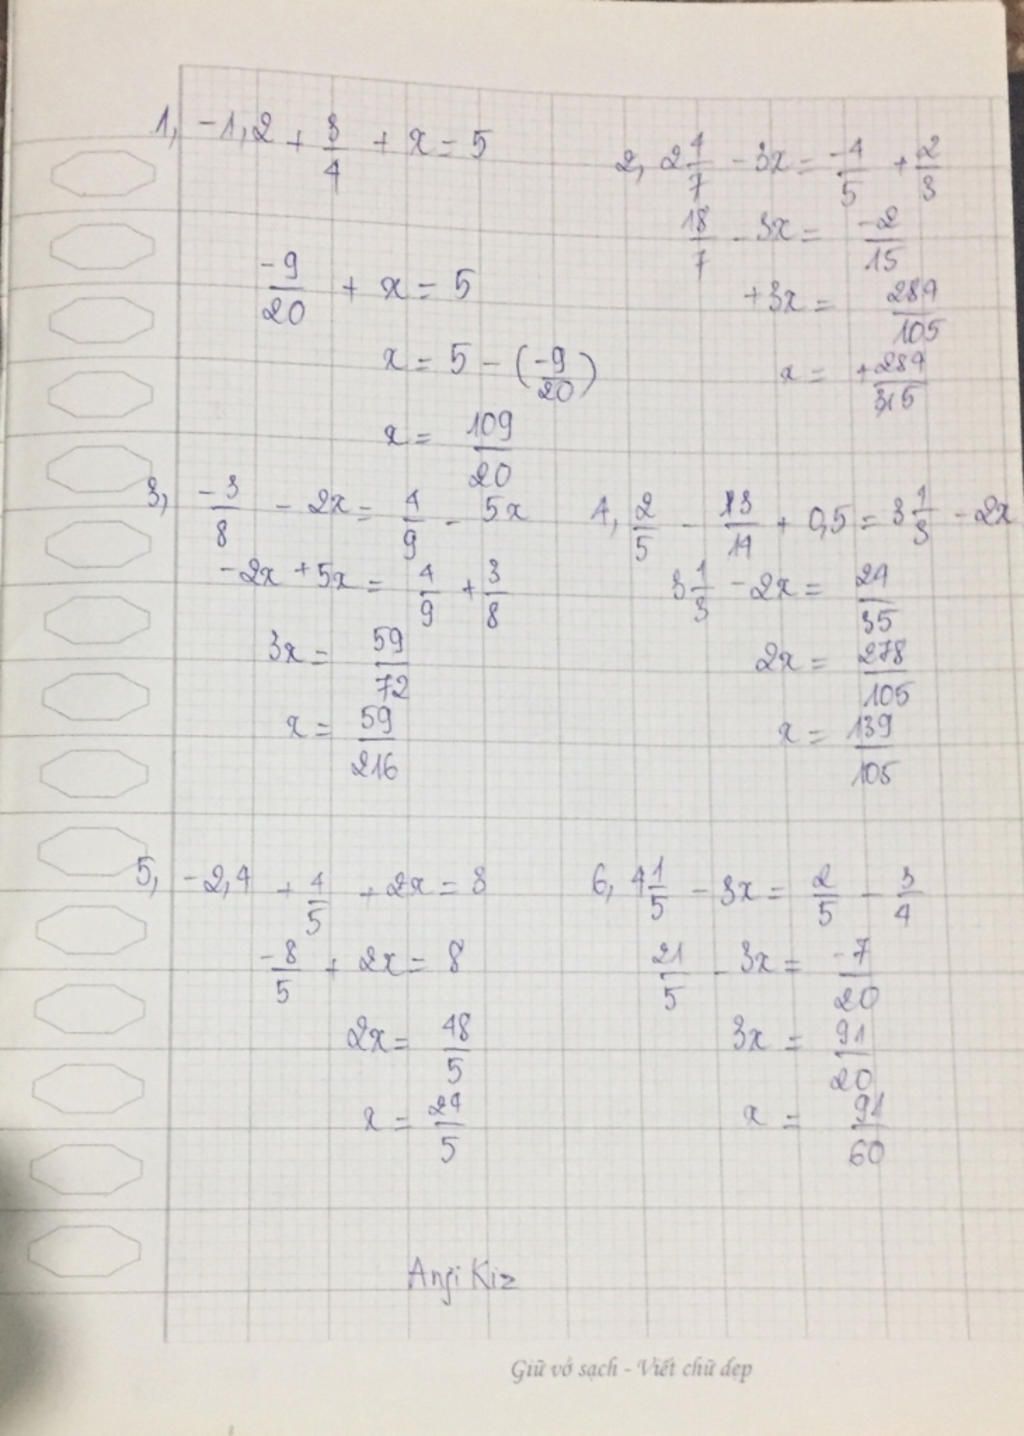 1, -1,2 + 3/4 + x = 5
-9/20 + x = 5
x = 5 - (-9/20)
x = 109/20
2, 2 4/7 - 3x = -4/5 + 2/3
18/7 - 3x = -2/15
+3x = 284/105
x = +284/315
3, -3/8 - 2x = 4/9 - 5x
-2x + 5x = 4/9 + 3/8
3x = 59/72
x = 59/216
4, 2/5 - 3/14 + 0,5 = 3 1/3 - 2x
3 1/3 - 2x = 24/35
2x = 278/105
x = 139/105
5, -2,4 + 4/5 + 2x = 8
-8/5 + 2x = 8
2x = 48/5
x = 24/5
6, 4 1/5 - 3x = 2/5 - 3/4
21/5 - 3x = -7/20
3x = 91/20
x = 91/60
Anji Kiz
Giữ vở sạch - Viết chữ đẹp